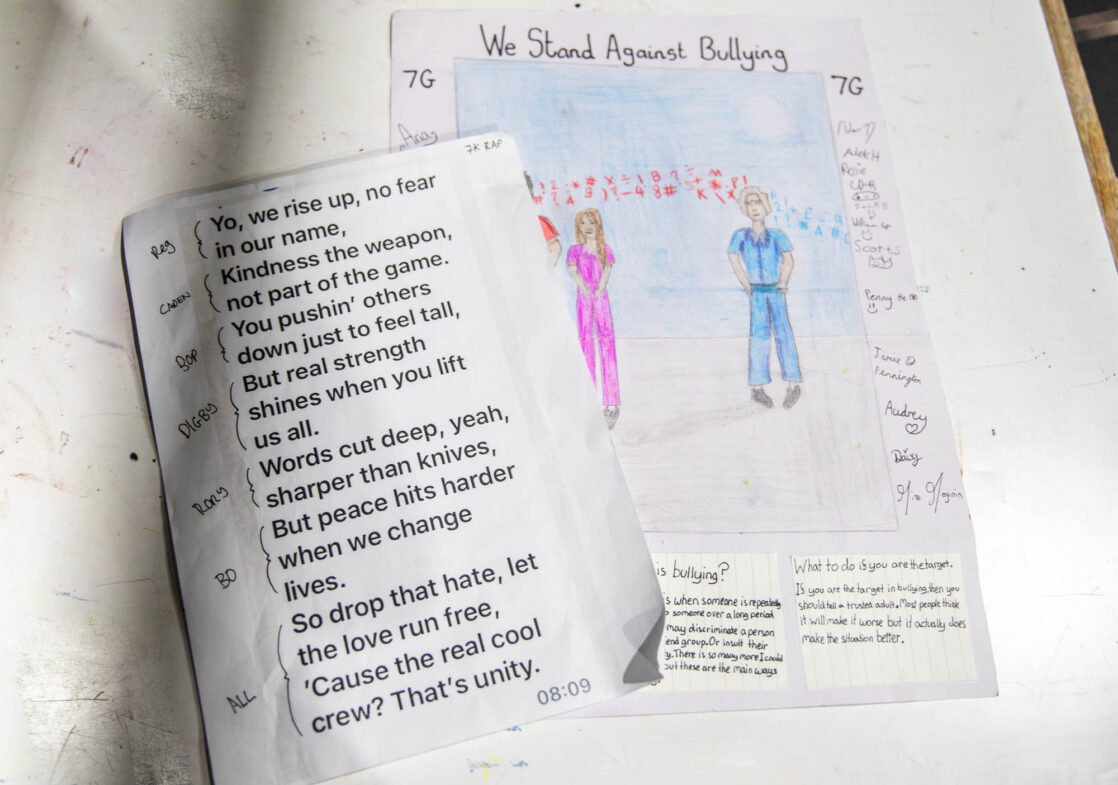 7K RAP
Reg
Yo, we rise up, no fear
in our name,
CADEN
Kindness the weapon,
not part of the game.
BOP
You pushin’ others
down just to feel tall,
DIGBY
But real strength
shines when you lift
us all.
RORY
Words cut deep, yeah,
sharper than knives,
BO
But peace hits harder
when we change
lives.
ALL
So drop that hate, let
the love run free,
’Cause the real cool
crew? That’s unity.
08:09
We Stand Against Bullying
7G
7G
Rosie
Scotts
Penny
Jamie
Pennington
Audrey
Daisy
Miss
is bullying?
s when someone is repeatedly
someone over a long period
may discriminate a person
end group. Or insult their
y. There is so many more I could
but these are the main ways
What to do if you are the target.
If you are the target in bullying then you
should tell a trusted adult. Most people think
it will make it worse but it actually does
make the situation better.